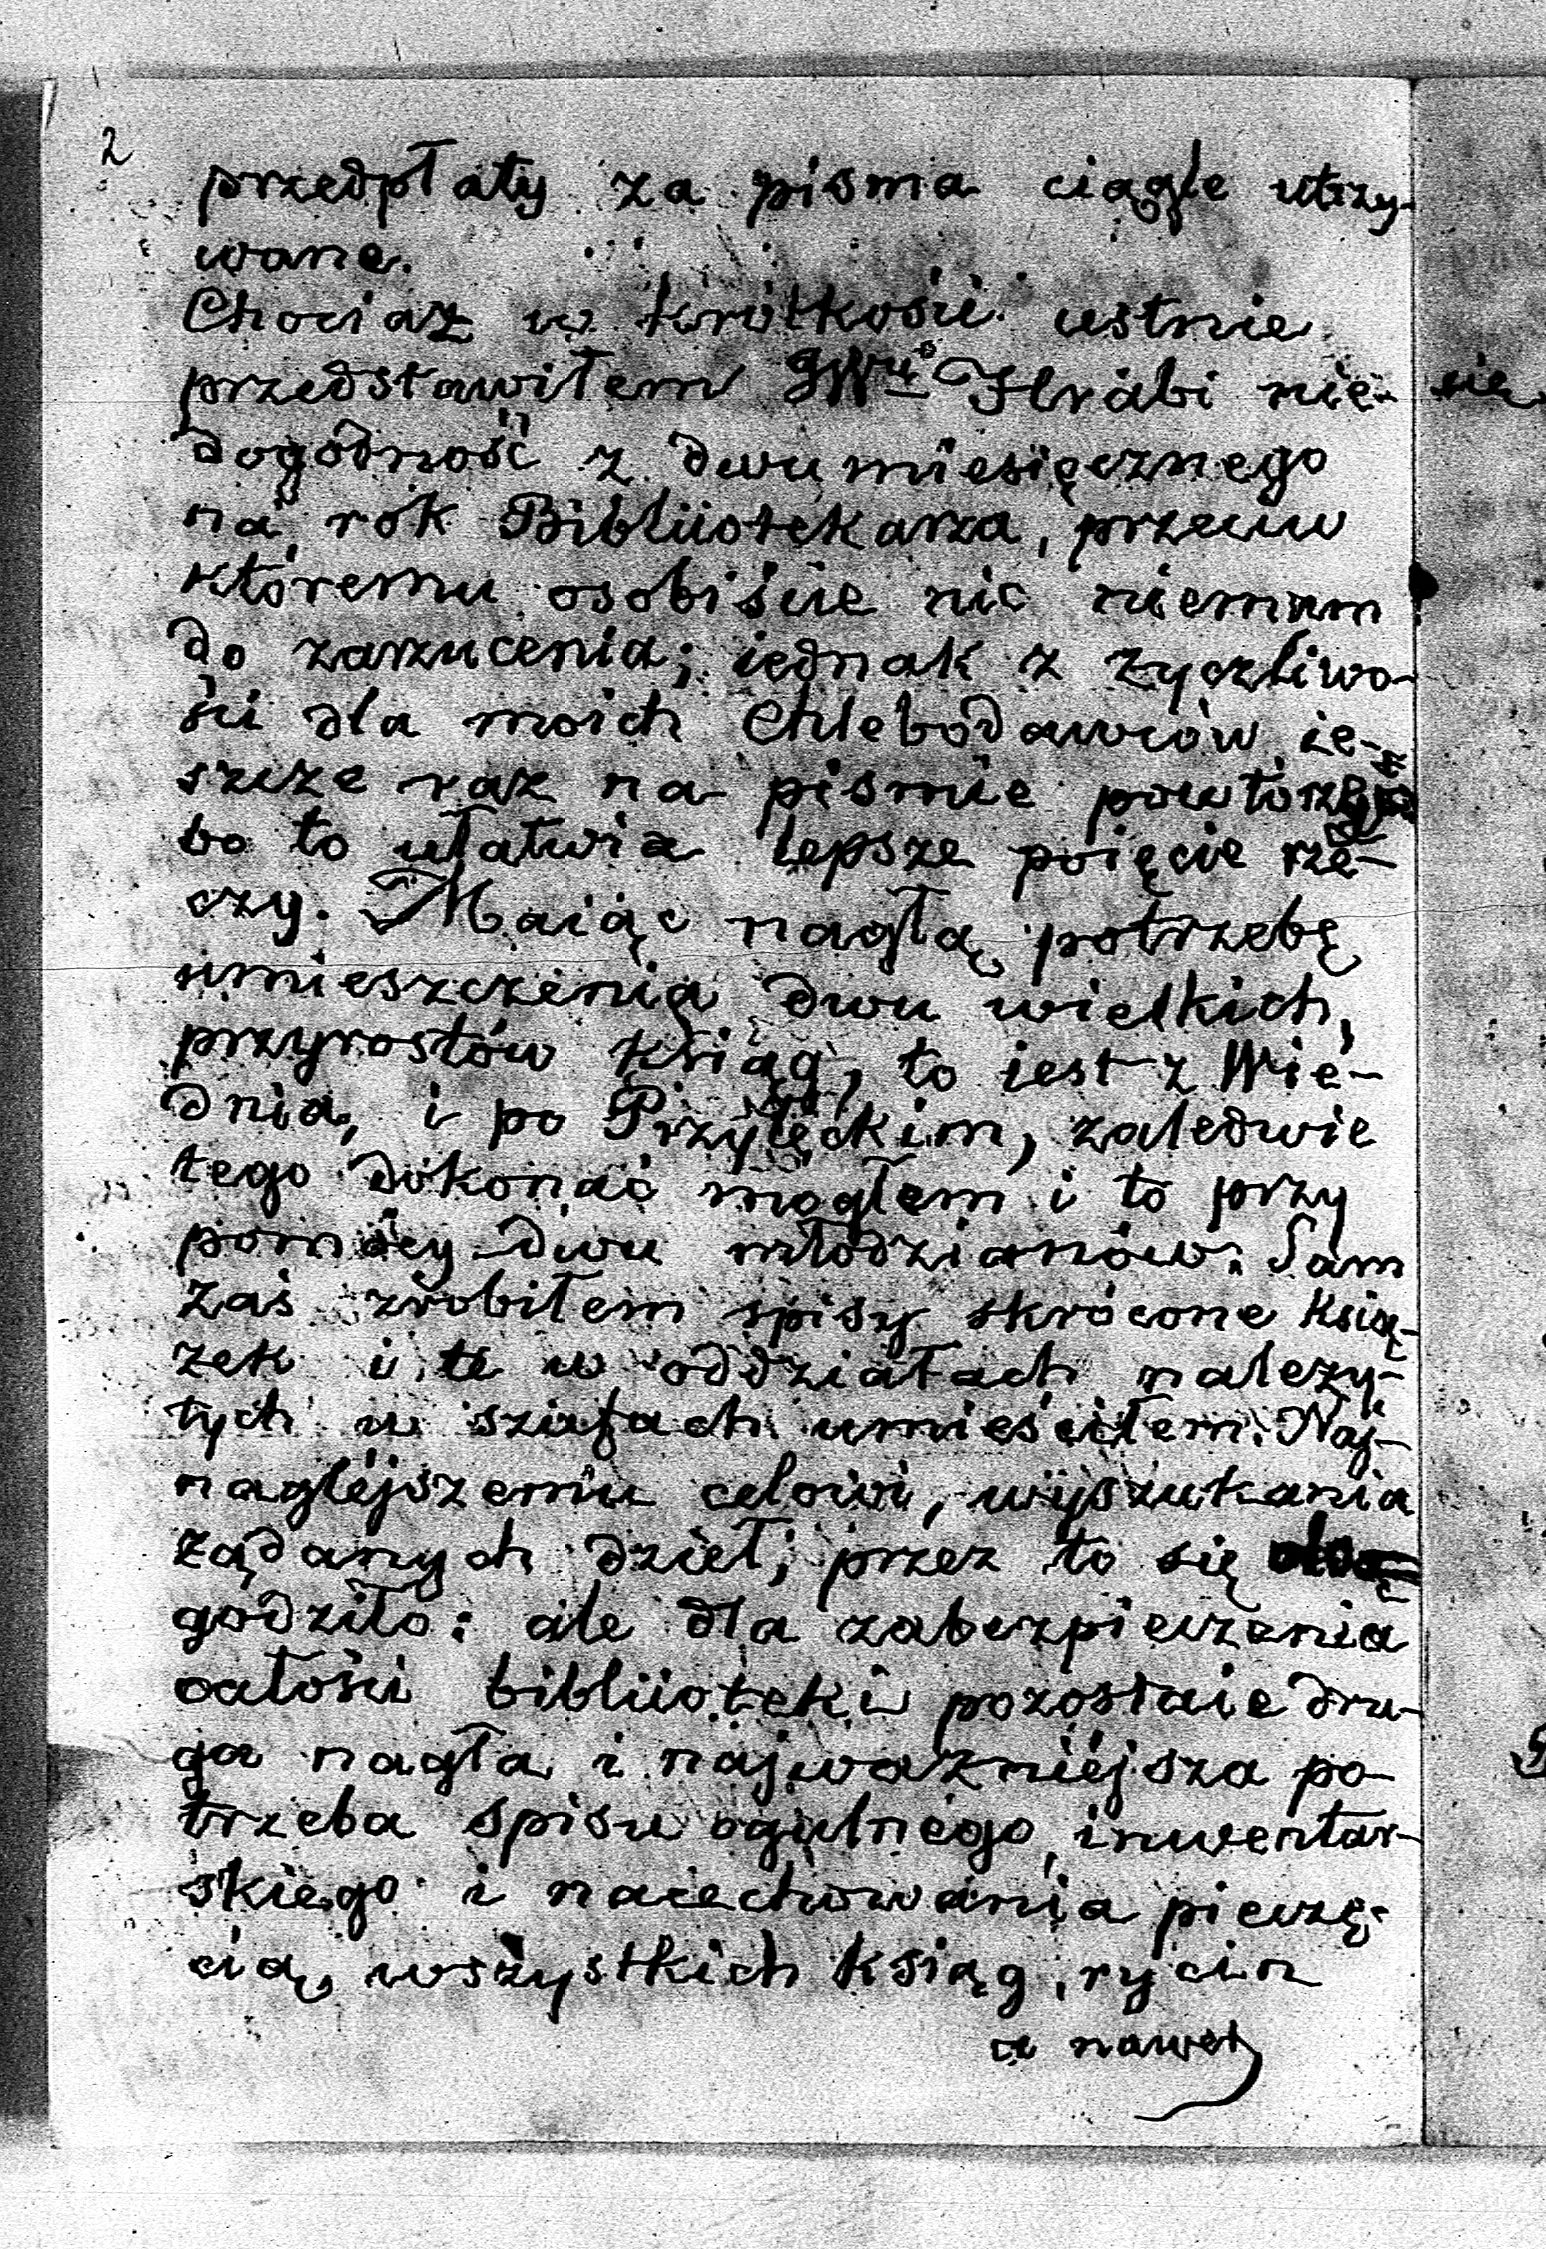 2
przedpłaty za pisma ciągle utrzy-
wane.
Chociaż w krótkości ustnie
przedstawiłem JWu Hrabi nie-
dogodność z dwumiesięcznego
na rok Bibliiotekarza, przeciw
któremu osobiście nic niemam
do zarzucenia; iednak z życzliwo-
ści dla moich Chlebodawców ie-
szcze raz na piśmie powtórzę
bo to ułatwia lepsze poięcie rze-
czy. Maiąc nagłą potrzebę
umieszczenia dwu wielkich
przyrostów ksiąg, to iest z Wie-
dnia, i po Przyłęckim, zaledwie
tego dokonać mogłem i to przy
pomocy dwu młodzianów. Sam
zaś zrobiłem spisy skrócone ksią-
żek i te w oddziałach należy-
tych w szafach umieściłem. Naj-
naglejszemu celowi, wyszukania
żądanych dzieł, przez to się
godziło: ale dla zabezpieczenia
całości bibliioteki pozostaie dru-
ga nagła i najważniejsza po-
trzeba spisu ogólnego inwentar-
skiego i nacechowania pieczę-
cią wszystkich ksiąg, rycin
a nawet